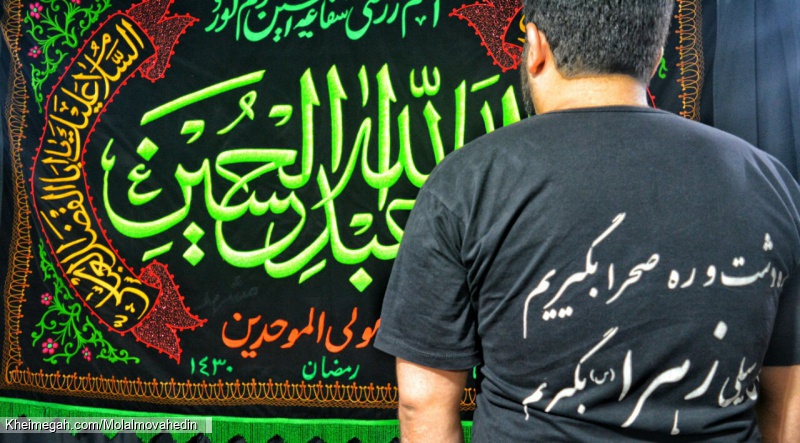 اللهم ارزقنی شفاعة الحسین یوم الورود
السلام علیک یا ابا الفضل العباس
عبدالله الحسین
ع
مولی الموحدین
رمضان ۱۴۳۰
دشت و ره صحرا بگیریم
سیلی زهرا (س) بگیریم
Kheimegah.com/Molalmovahedin